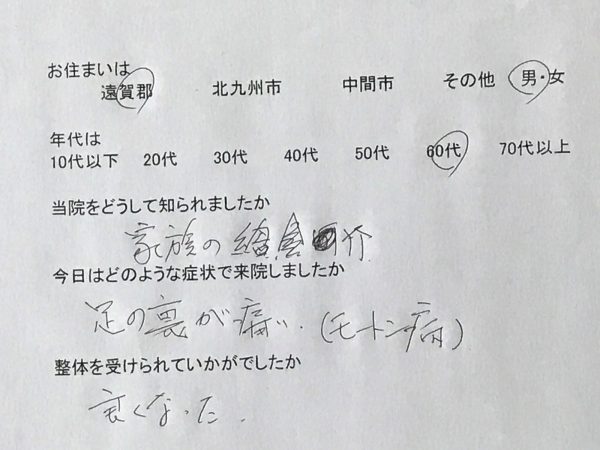 お住まいは
遠賀郡 北九州市 中間市 その他 男・女
年代は
10代以下 20代 30代 40代 50代 60代 70代以上
当院をどうして知られましたか
家族の 介
今日はどのような症状で来院しましたか
足の裏が痛い.(モートン病)
整体を受けられていかがでしたか
良くなった.